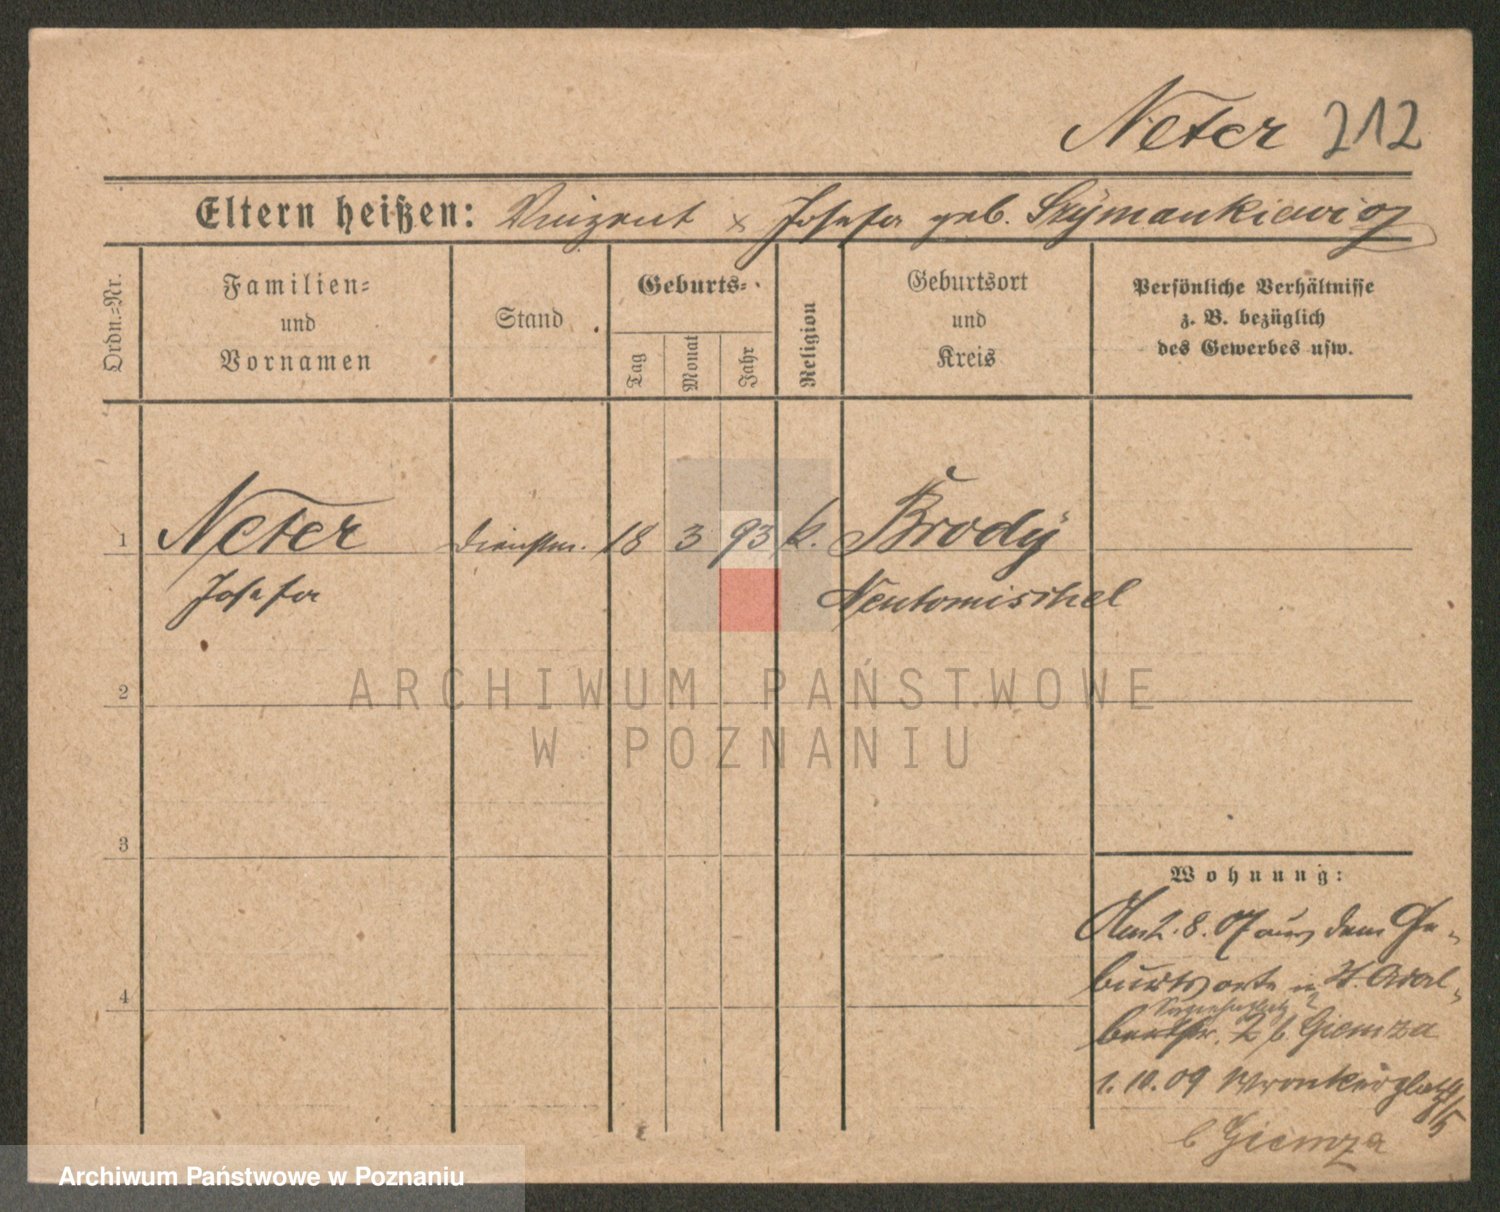 Neter 212
Eltern heißen: Vinzent x Josefa geb. Szymankiewicz
Ordn.-Nr.
Familien-
und
Vornamen
Stand
Geburts-
Tag
Monat
Jahr
Religion
Geburtsort
und
Kreis
Persönliche Verhältnisse
z. B. bezüglich
des Gewerbes usw.
1 Neter Dienstm. 18 3 93 k. Brody
Josefa Neutomischel
2
3
4
Wohnung:
Am 2. 8. 07 aus dem Ge-
burtsorte n. St. Adal-
bertstr. 2 b. Giemza
1. 10. 09 Wronkerplatz 4/5
b Giemza
ARCHIWUM PAŃSTWOWE
W POZNANIU
Archiwum Państwowe w Poznaniu